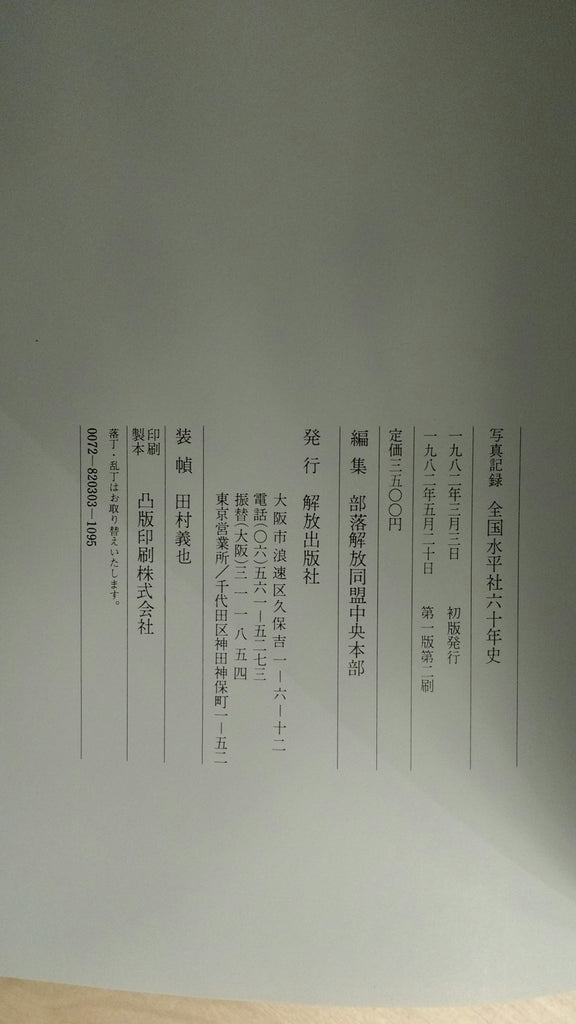 写真記録 全国水平社六十年史
一九八二年三月三日 初版発行
一九八二年五月二十日 第一版第二刷
定価三五〇〇円
編集 部落解放同盟中央本部
発行 解放出版社
大阪市浪速区久保吉一―六―十二
電話(〇六)五六一―五二七三
振替(大阪)三一一八五四
東京営業所／千代田区神田神保町一―五二
装幀 田村義也
印刷
製本 凸版印刷株式会社
落丁・乱丁はお取り替えいたします。
0072―820303―1095